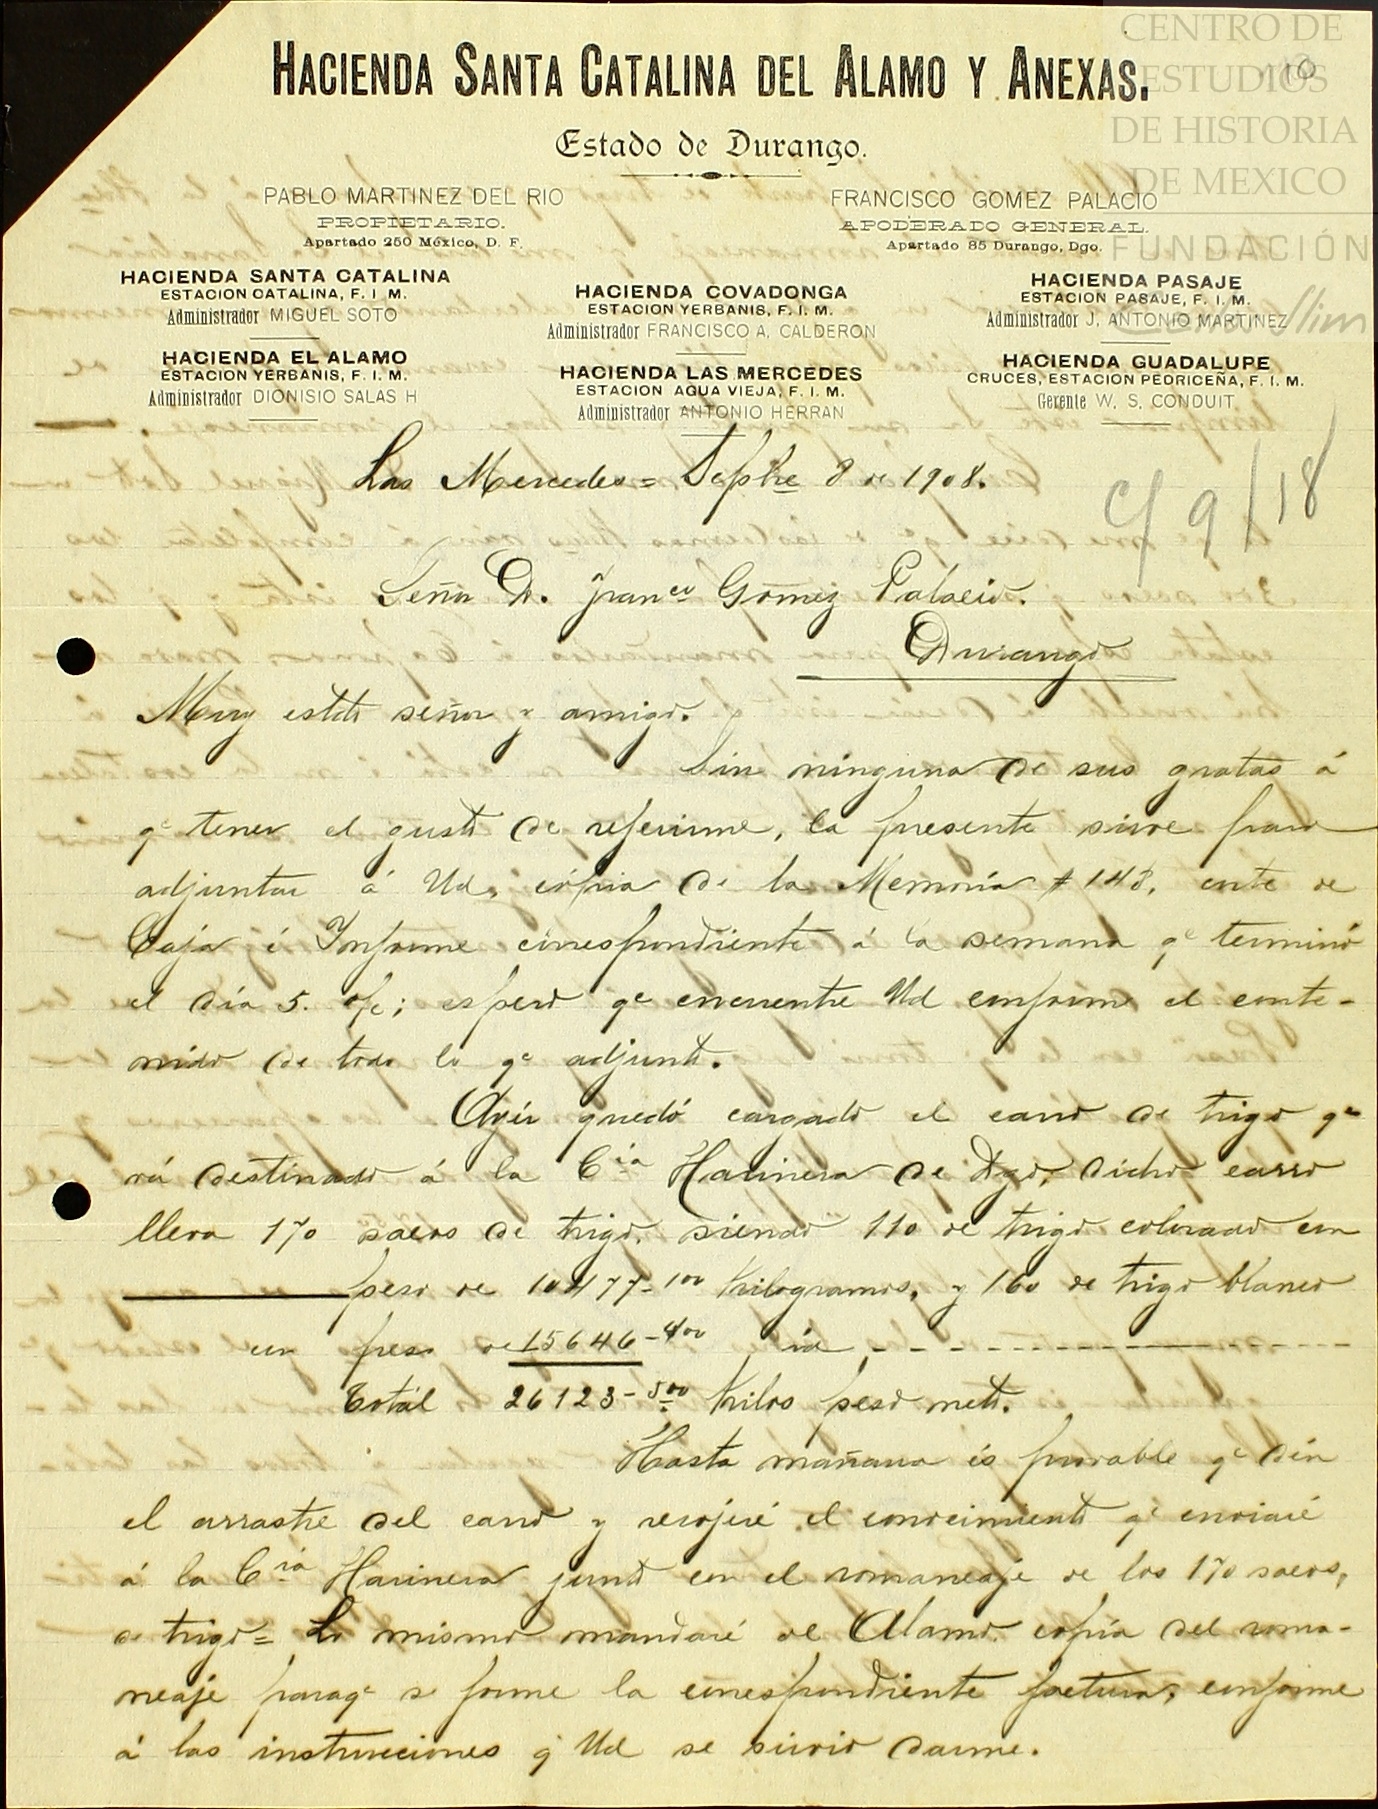 CENTRO DE
ESTUDIOS
DE HISTORIA
DE MEXICO
FUNDACIÓN
Carlos Slim
10
HACIENDA SANTA CATALINA DEL ALAMO Y ANEXAS.
Estado de Durango.
PABLO MARTINEZ DEL RIO
PROPIETARIO.
Apartado 250 México, D. F.
FRANCISCO GOMEZ PALACIO
APODERADO GENERAL.
Apartado 85 Durango, Dgo.
HACIENDA SANTA CATALINA
ESTACION CATALINA, F. I. M.
Administrador MIGUEL SOTO
HACIENDA EL ALAMO
ESTACION YERBANIS, F. I. M.
Administrador DIONISIO SALAS H
HACIENDA COVADONGA
ESTACION YERBANIS, F. I. M.
Administrador FRANCISCO A. CALDERON
HACIENDA LAS MERCEDES
ESTACION AGUA VIEJA, F. I. M.
Administrador ANTONIO HERRAN
HACIENDA PASAJE
ESTACION PASAJE, F. I. M.
Administrador J. ANTONIO MARTINEZ
HACIENDA GUADALUPE
CRUCES, ESTACION PEDRICEÑA, F. I. M.
Gerente W. S. CONDUIT
Las Mercedes = Sepbre 8 de 1908.
c/ 9/18
Señor D. Franco Gómez Palacio.
Durango
Muy estdo señor y amigo.
Sin ninguna de sus gratas á
qe tener el gusto de referirme, la presente sirve para
adjuntar á Ud. cópia de la Memoria # 148, corte de
Caja é Informe correspondiente á la semana qe terminó
el día 5. ofe; espero qe encuentre Ud conforme el conte-
nido de todo lo qe adjunto.
Ayér quedó cargado el carro de trigo qe
vá destinado á la Cia Harinera de Dgo, dicho carro
lleva 170 sacos de trigo, siendo 110 de trigo colorado con
peso de 10477-100 kilogramos, y 160 de trigo blanco
con peso de 15646-400 id
Totál 26123-500 kilos peso neto.
Hasta mañana és provable qe dén
el arrastre del carro y recojeré el conocimiento qe enviaré
á la Cia Harinera junto con el romaneaje de los 170 sacos,
de trigo = Lo mismo mandaré al Alamo copia del roma-
neaje paraqe se forme la correspondiente factura, conforme
á las instrucciones q Ud se sirvió darme.